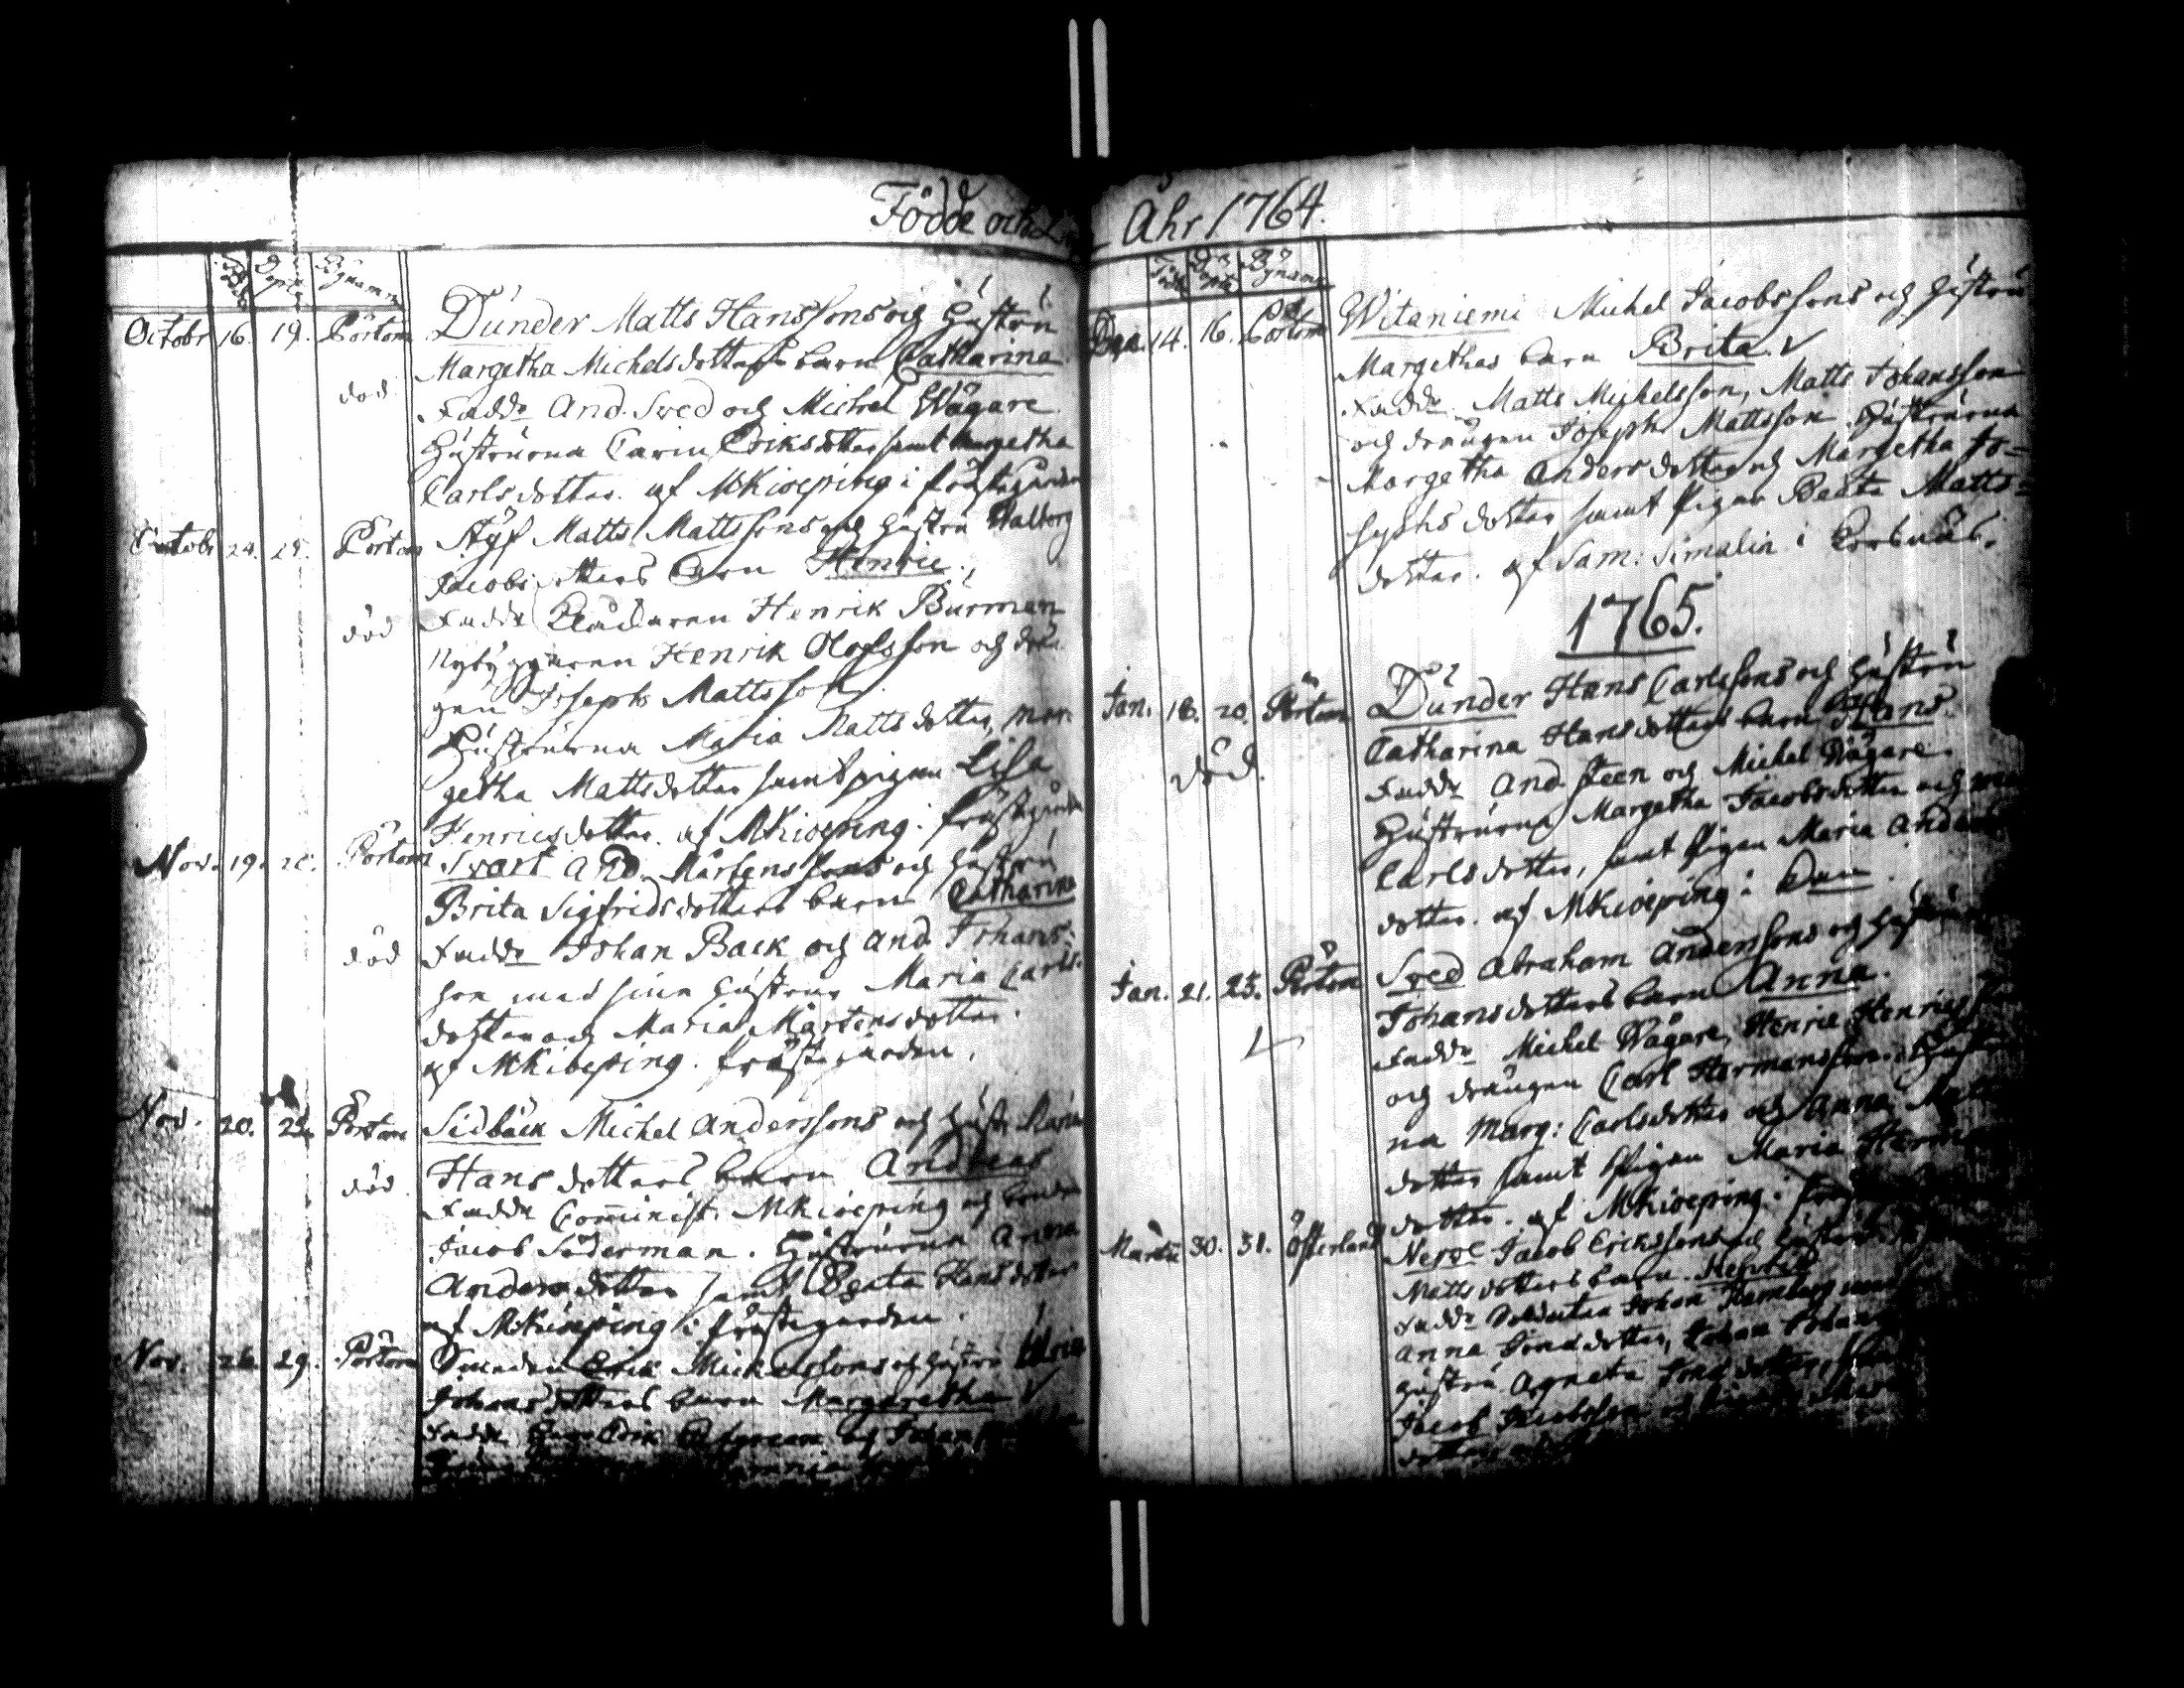 Födde och
Född Döpte Bynamn
Octobr 16. 19. Pörtom Dunder Matts Hanssons och Hustru
Margetha Michelsdotters barn Catharina
död
Fadd. And. Sved och Michel Wågare
Hustrurna Carin Eriksdotter samt Margetha
Carlsdotter. af MKiöping i Prästgården
Octobr 24. 25. Pörtom Styf Matts Mattssons och Hustru Walborg
Jacobsdotters barn Henric.
död Fadd. Henrik Burman
Nybyggaren Henrik Olofsson och drän
gen Joseph Mattsson.
Hustrurna Maria Mattsdotter, Mar-
getha Mattsdotter samt pigan Lisa
Henricsdotter. af MKiöping. Prästgården
Nov. 19. 20. Pörtom Svart And. Mårtenssons och Hustru
Brita Sigfridsdotters barn Catharina
död Fadd. Johan Back och And. Johans-
son med sina hustrur Maria Carls-
dotter och Maria Mårtensdotter.
af MKiöping. Prästgården.
Nov. 20. 25. Pörtom Sidbäck Michel Anderssons och Hustr. Maria
Hansdotters barn Andreas
död
Fadd. Comminist. MKiöping och bonden
Jacob Söderman. Hustrurna Anna
Andersdotter samt Beata Hansdotter
af MKiöping i Prästgården.
Nov. 26. 29. Pörtom Smeden Erik Michelssons och Hustru Maria
Johansdotters barn Margaretha V
Fadd. Erik och Johan
Ahr 1764.
Född Döpte Bynamn
Dec. 14. 16. Pörtom Witaniemi Michel Jacobssons och Hustru
Margethas barn Brita. V
Fadd. Matts Michelsson, Matts Johansson
och drängen Joseph Mattsson. Hustrurna
Margetha Andersdotter och Margetha Jo-
sephsdotter samt Pigan Beata Matts-
dotter. af Sam: Simalin i Korsnäs.
1765.
Jan. 18. 20. Pörtom Dunder Hans Carlssons och Hustru
Catharina Hansdotters barn Hans.
död.
Fadd. And. Steen och Michel Wågare.
Hustrurna Margetha Jacobsdotter och
Carlsdotter, samt Pigan Maria Anders
dotter. af MKiöping i
Jan. 21. 25. Pörtom Sved Abraham Anderssons och Hustru
Johansdotters barn Anna.
Fadd. Michel Wågare, Henric Henrics
och drängen Carl Hermansson. Hustrur
na Marg: Carlsdotter och Anna Matts
dotter samt Pigan Maria Herm
dotter. af MKiöping i
Martii 30. 31. Österland Nergl Jacob Erikssons och Hustru
Mattsdotters barn Henric
Fadd. Soldaten Johan
Anna Jönsdotter, Johan Johans
Hustru Agneta Jönsdotter,
Jacob Jacobsson
dotter